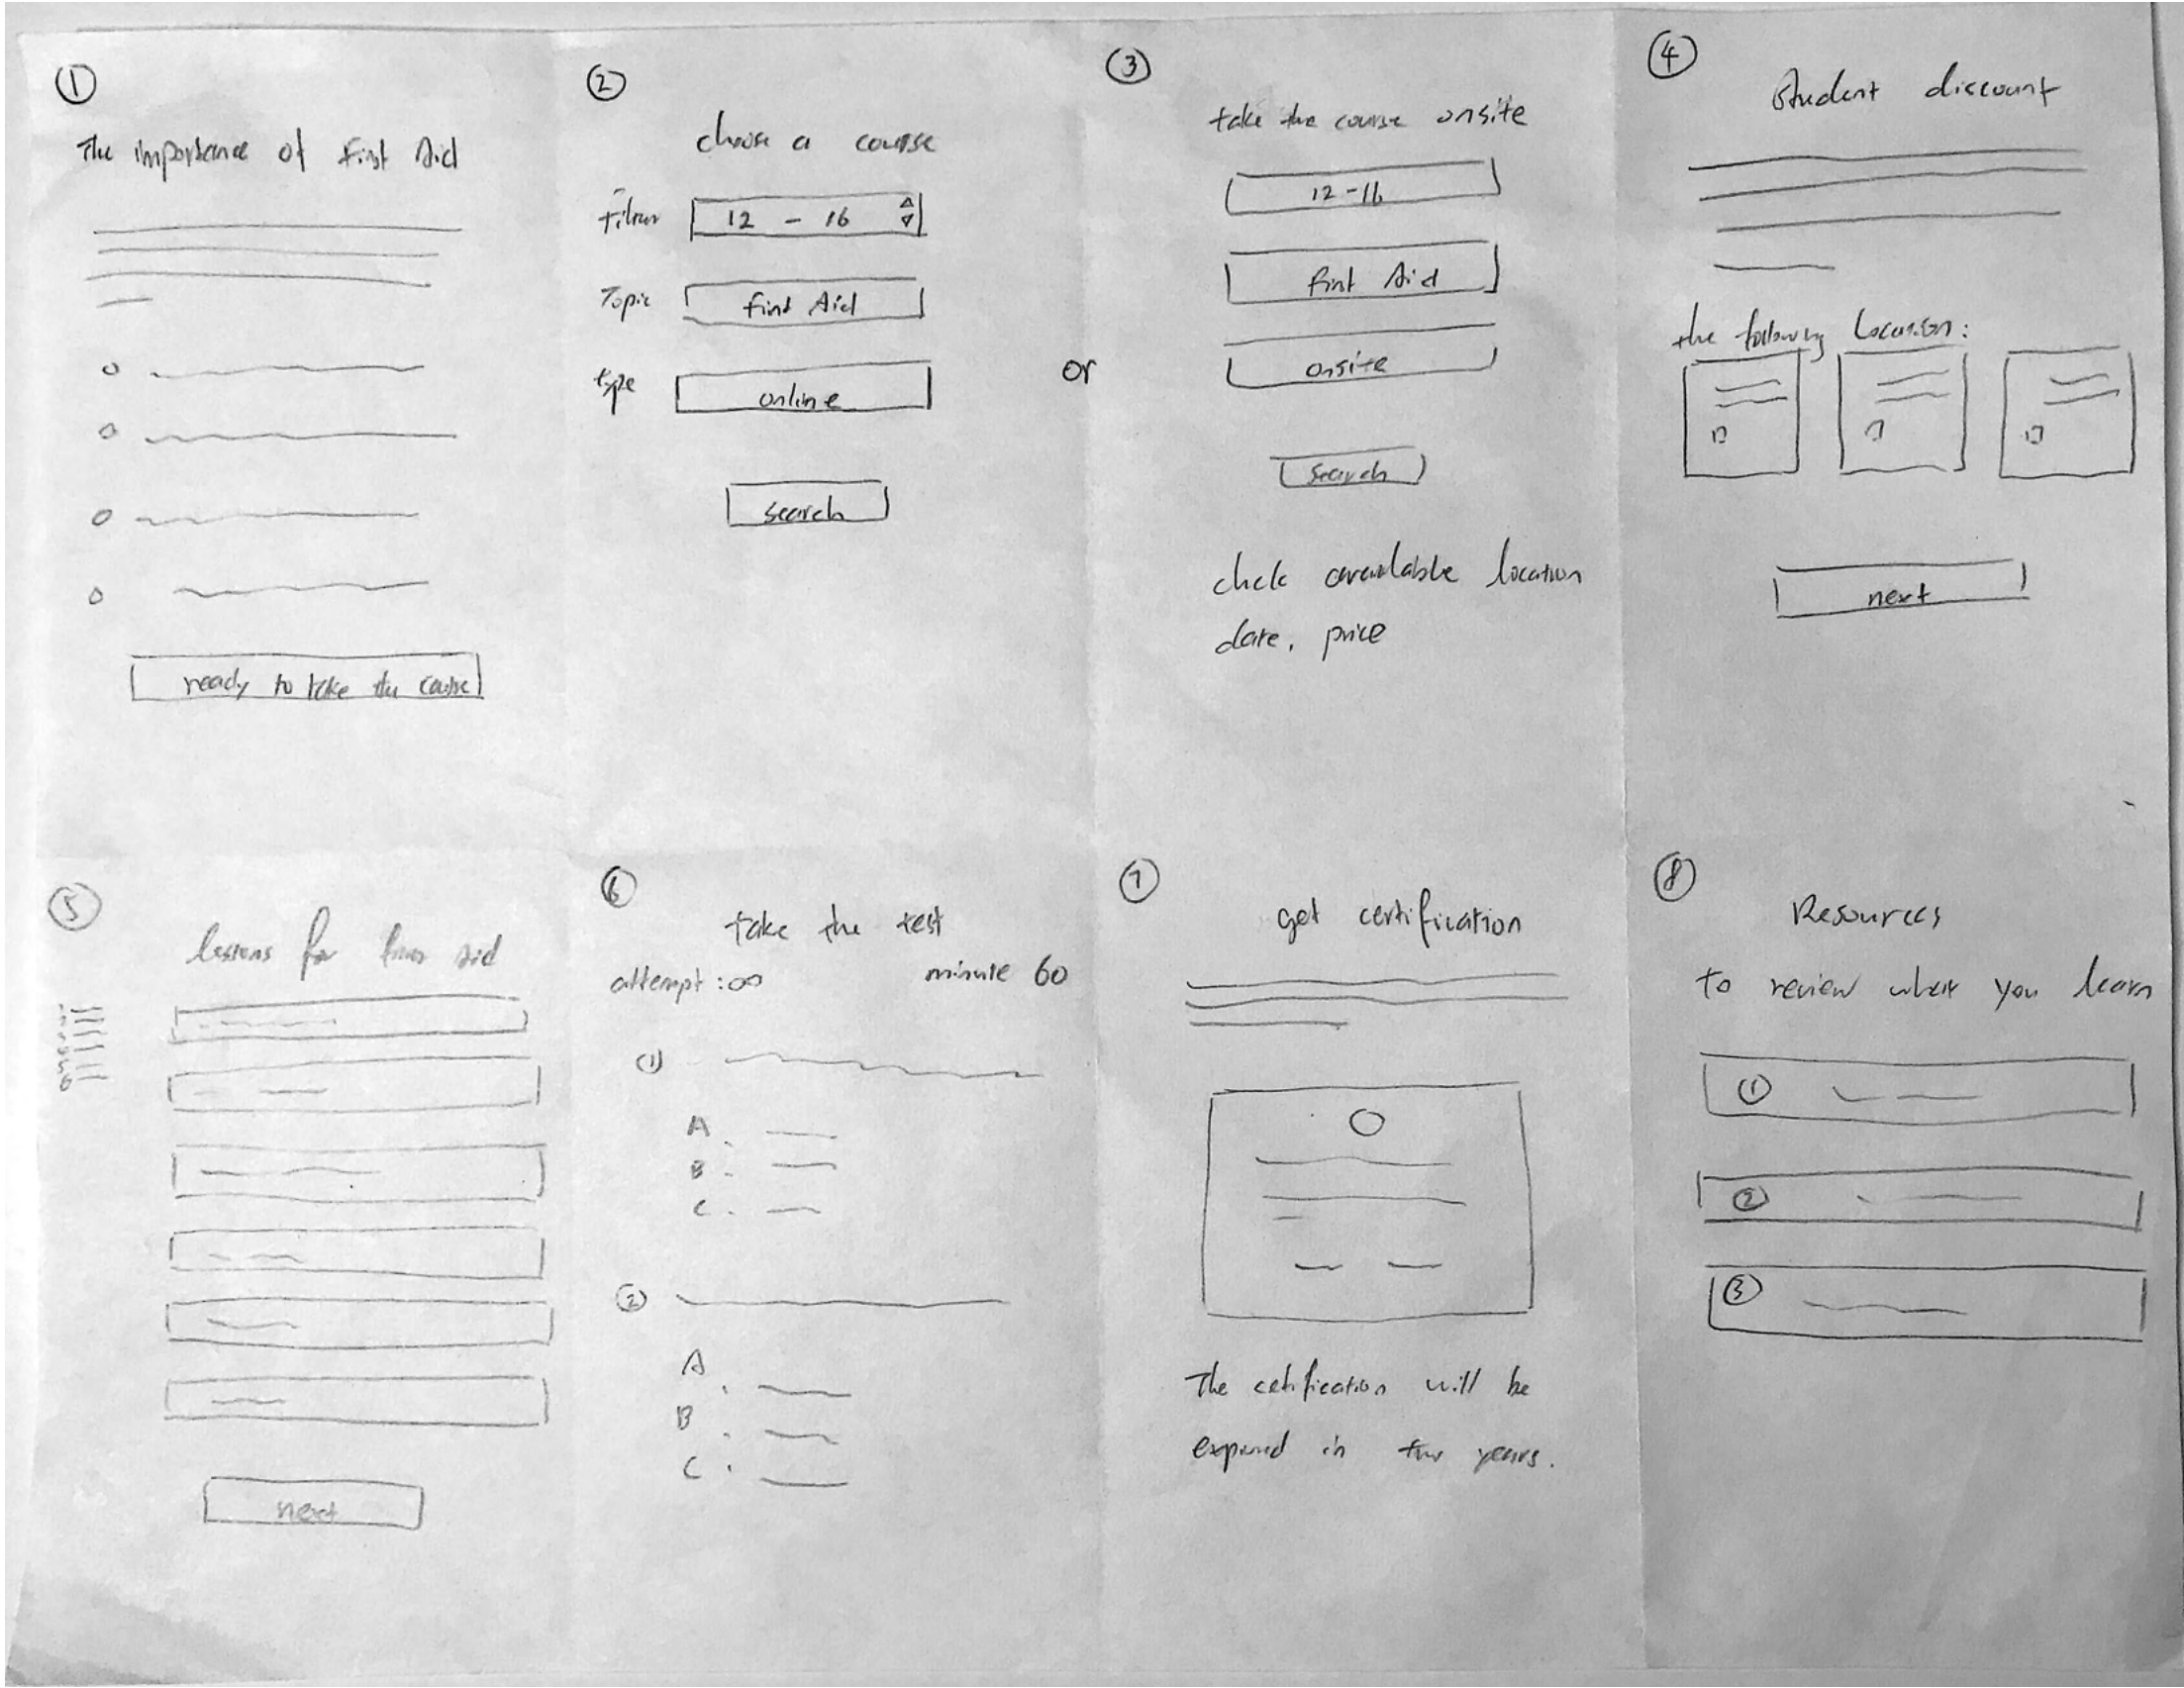 ①
The importance of first Aid
ready to take the course
②
choose a course
12 - 16
Topic
first Aid
type
online
search
or
③
take the course onsite
12-16
first Aid
onsite
search
available location
date, price
④
Student discount
the following location:
next
⑤
lessons for aid
next
⑥
take the test
attempt : ∞
minute 60
(1)
A
B
C
②
A
B
C
⑦
get certification
The cetification will be
in years.
⑧
Resources
to review what you learn
①
②
③